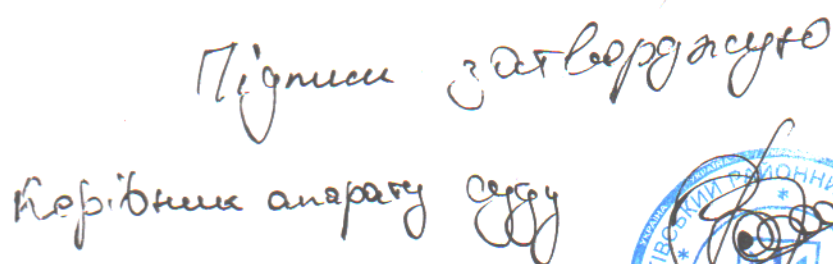 Підписи затверджую
Керівник апарату суду
УКРАЇНА
ІВСЬКИЙ РАЙОННИ